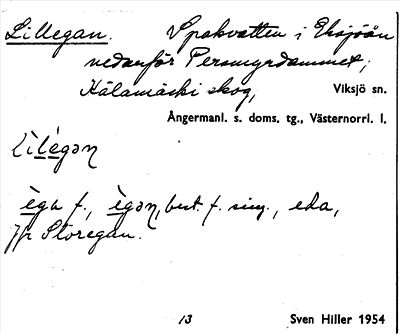 Lillegan. Spakvatten i Eksjöån
nedanför Permyrdammet;
Kälamäski skog, Viksjö sn.
Ångermanl. s. doms. tg., Västernorrl. l.
Lìlégan
èga f., ègan, best. f. sing., eda,
Jfr Storegan.
13 Sven Hiller 1954